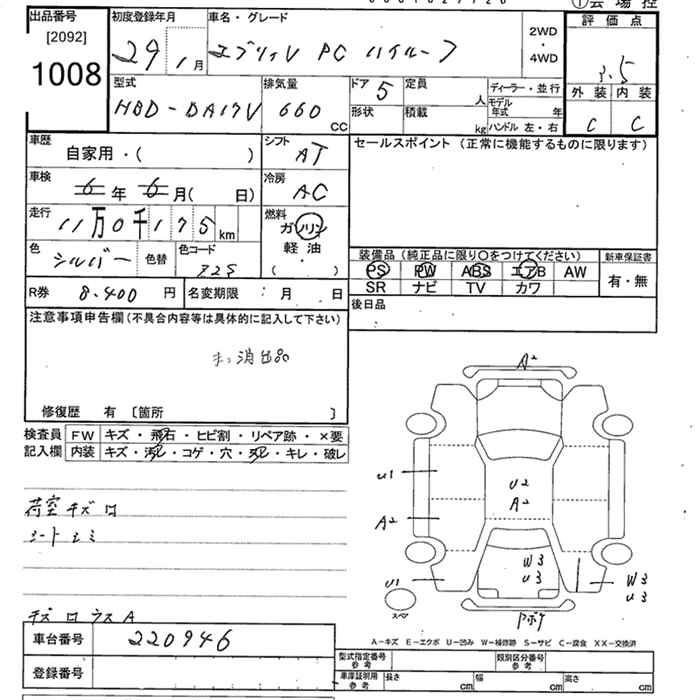 出品番号 初度登録年月 車名・グレード 2WD・4WD 評価点
[2092]
1008 29 1月 エブリィV PC ハイルーフ 3.5
型式 排気量 ドア 定員 ディーラー・並行 外装 内装
HBD-DA17V 660 CC 5 人 モデル年式 年 C C
形状 積載 kg ハンドル 左・右
車歴 自家用・( ) シフト AT セールスポイント (正常に機能するものに限ります)
車検 6年 6月( 日) 冷房 AC
走行 11万0千175km 燃料 ガソリン 軽油 ( ・ )
色 シルバー 色替 色コード 装備品 (純正品に限り○をつけてください) 新車保証書
PS PW ABS エアB AW 有・無
SR ナビ TV カワ
R券 8,400円 名変期限 : 月 日 後日品
注意事項申告欄 (不具合内容等は具体的に記入して下さい)
消出品
修復歴 有 〔箇所 〕
検査員 FW キズ・飛石・ヒビ割・リペア跡・×要
記入欄 内装 キズ・汚レ・コゲ・穴・スレ・キレ・破レ
A2
U1
U2
A2
A2
W3
U3
U1
W3
U3
スペア
荷室キズ ロ
シート シミ
キズ ロ ラス A
A-キズ E-エクボ U-凹み W-補修跡 S-サビ C-腐食 XX-交換済
車台番号 220946
型式指定番号 参考 類別区分番号 参考
登録番号 車庫証明用 参考 長さ cm 幅 cm 高さ cm